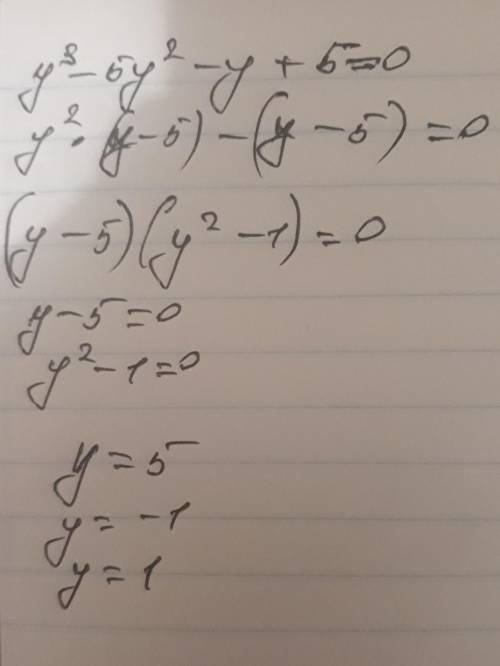 y³ - 5y² - y + 5 = 0
y² · (y - 5) - (y - 5) = 0
(y - 5)(y² - 1) = 0
y - 5 = 0
y² - 1 = 0
y = 5
y = -1
y = 1